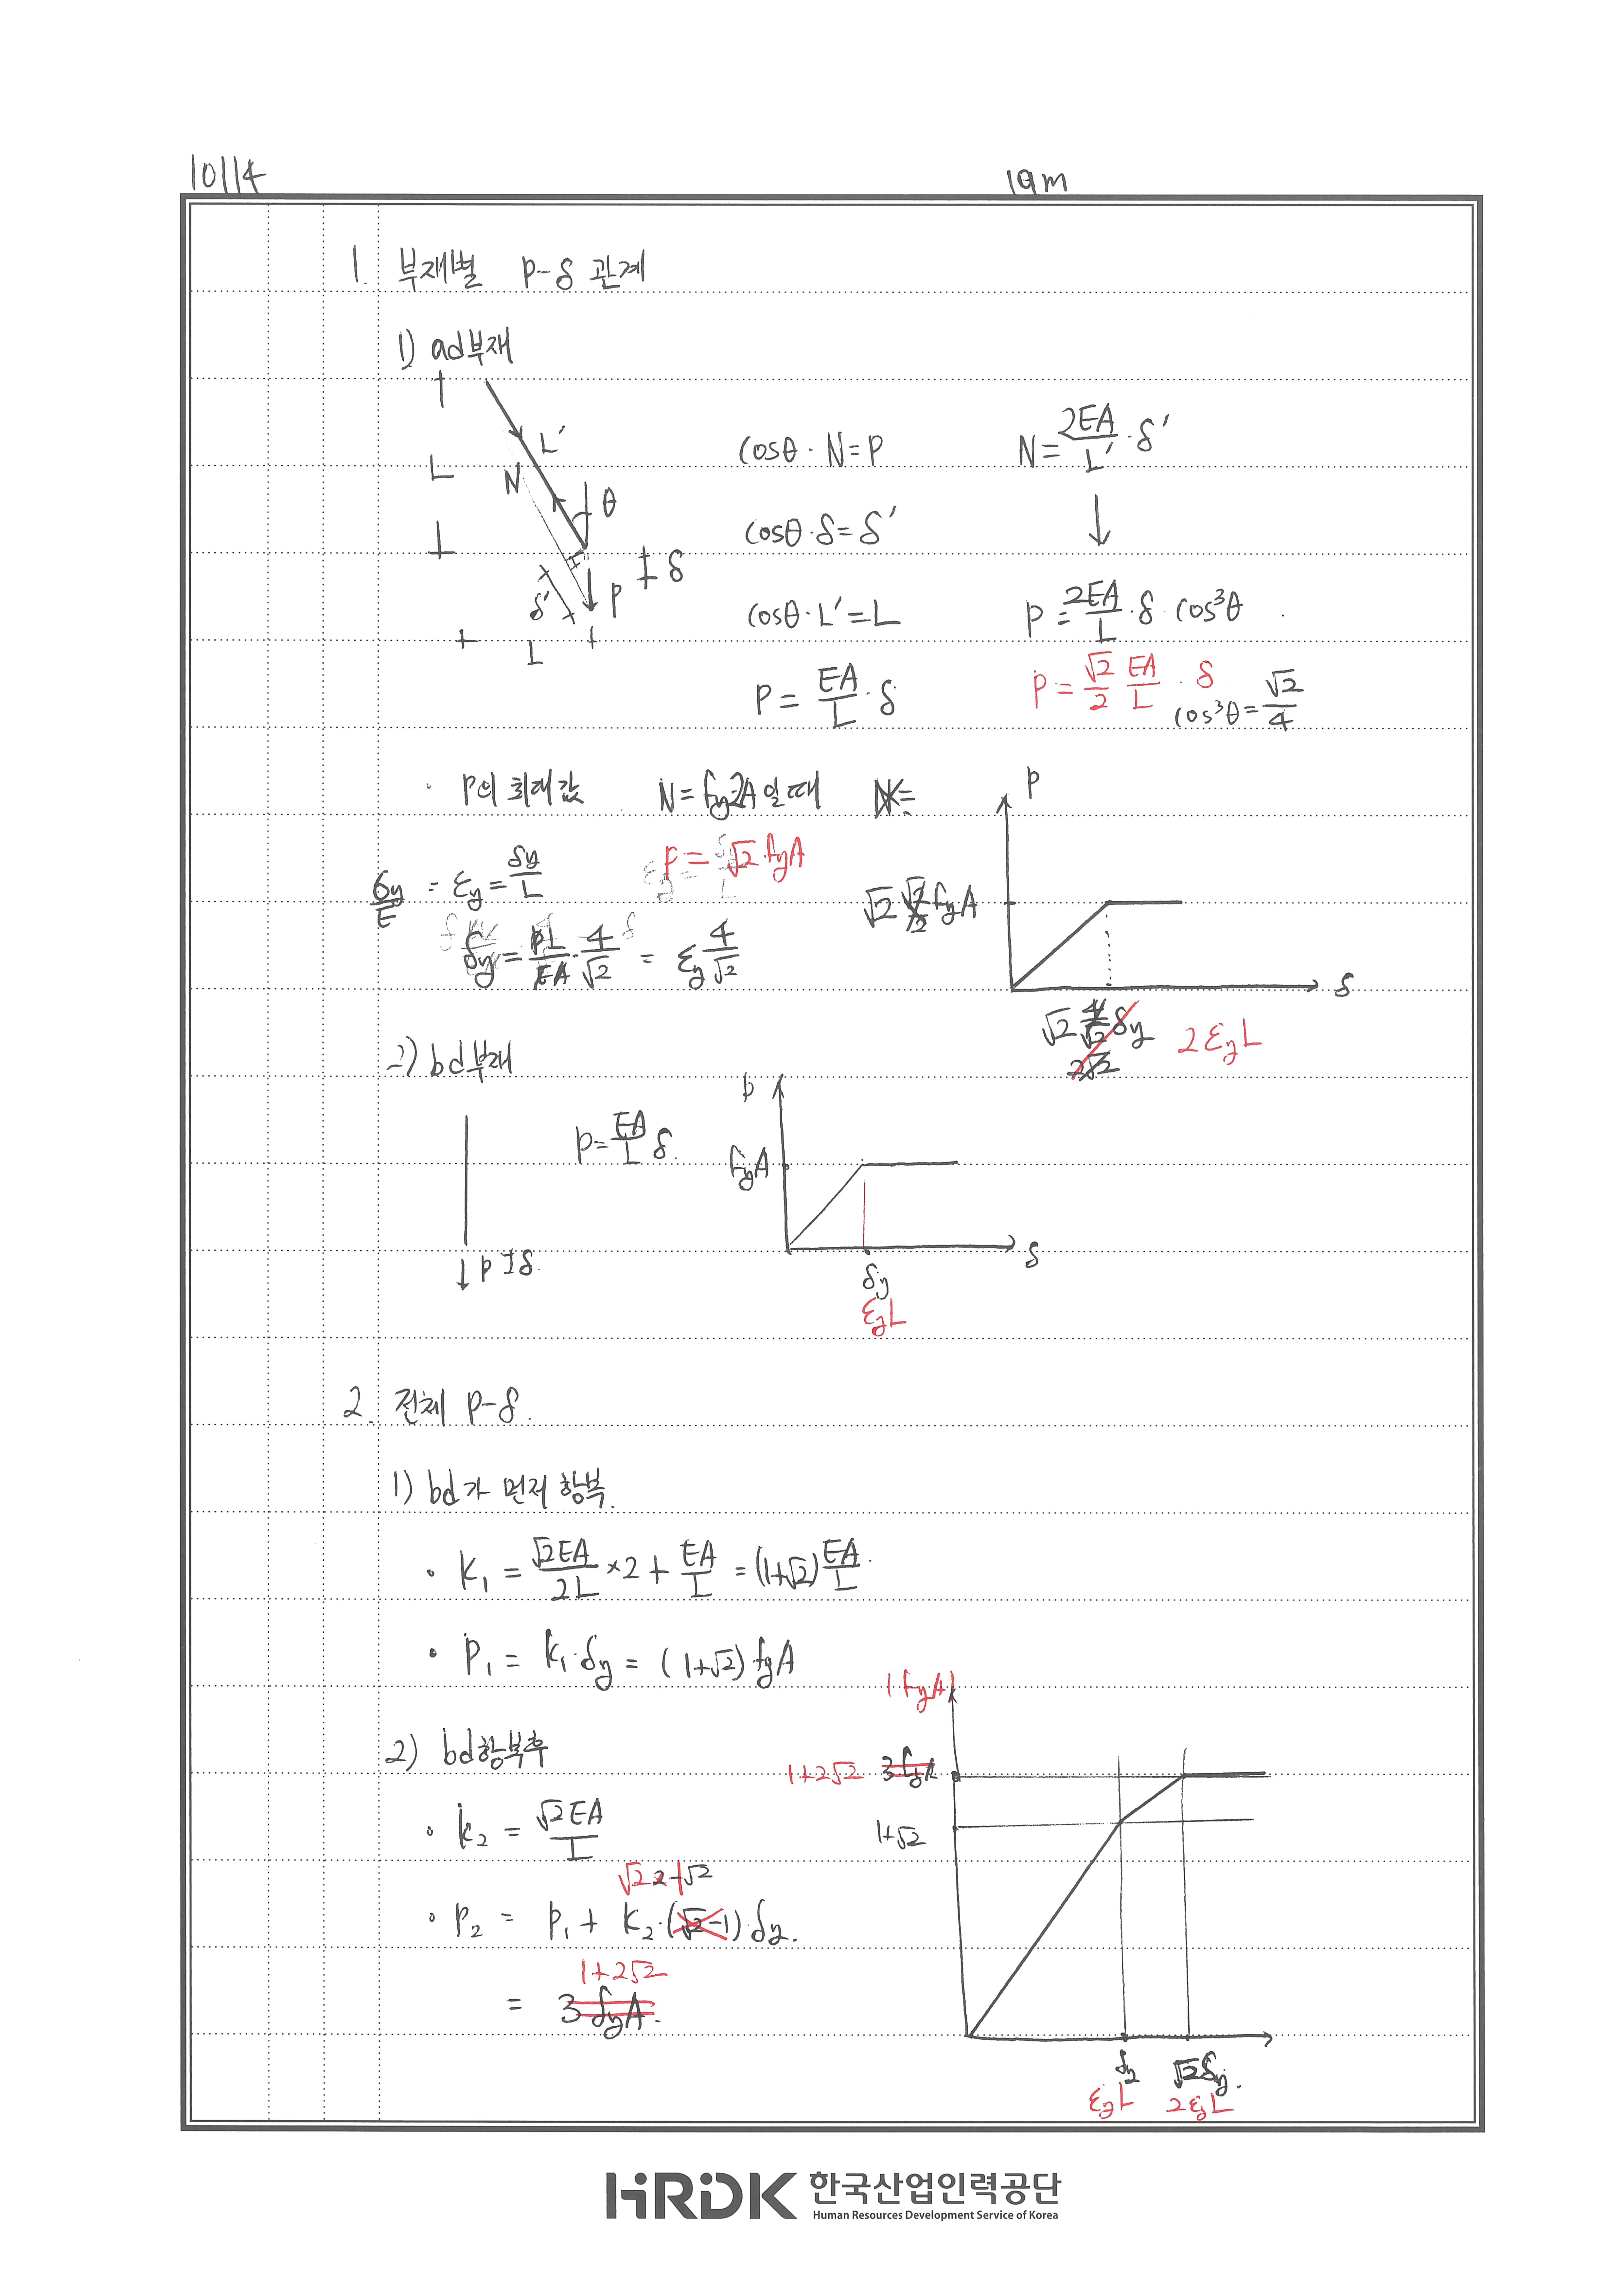 10114
19m
1. 부재별 P-δ 관계
1) ad부재
L
L'
N
θ
δ'
P
δ
L
cosθ · N = P
N = 2EA/L' · δ'
cosθ · δ = δ'
↓
cosθ · L' = L
P = 2EA/L · δ cos³θ
P = EA/L · δ
P = √2/2 EA/L · δ
cos³θ = √2/4
· P의 최대값 N = fy2A일때
P = √2 fyA
σy/E = εy = δy/L
δy = PL/EA · 4/√2 = εy 4/√2
P
√2 fyA
δ
2εyL
2) bd부재
P = EA/L δ.
P δ
P
fyA
δ
δy
εyL
2. 전체 P-δ.
1) bd가 먼저 항복.
· K₁ = √2EA/2L × 2 + EA/L = (1+√2) EA/L.
· P₁ = K₁·δy = (1+√2) fyA
2) bd항복후
· k₂ = √2EA/L
· P₂ = P₁ + K₂·(√2-1) δy.
1+2√2
= 3fyA.
(fyA)
1+2√2 3fyA
1+√2
δy √2δy.
εyL 2εyL
HRDK 한국산업인력공단
Human Resources Development Service of Korea